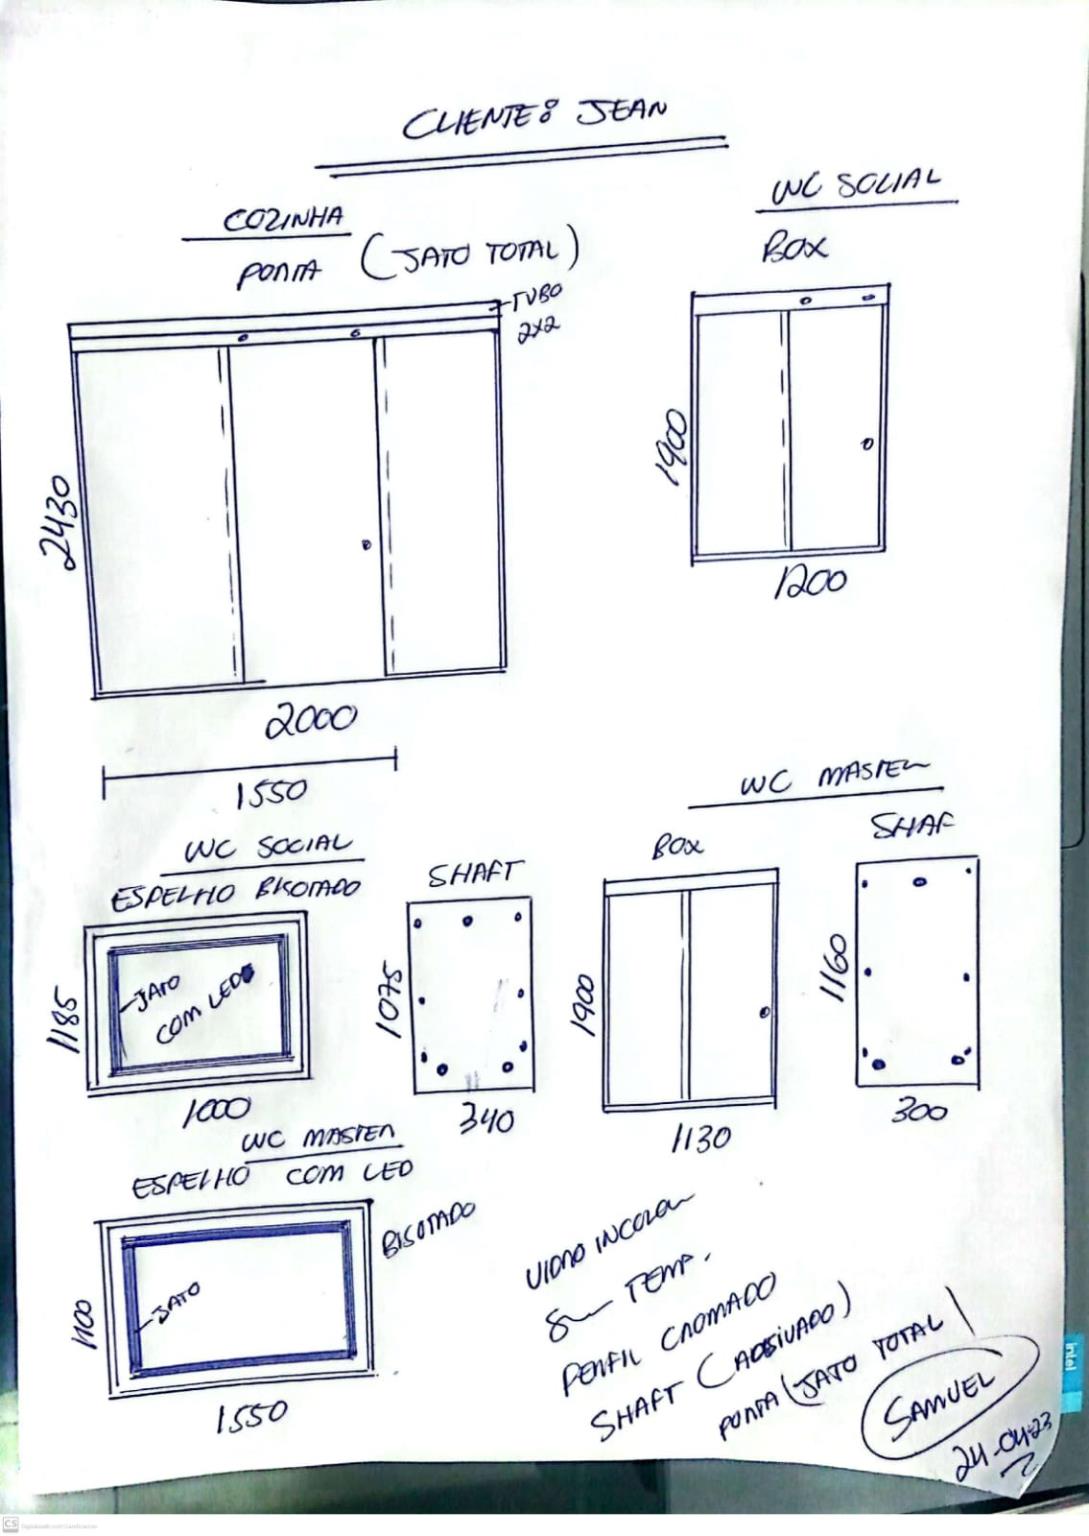 CLIENTE: JEAN
COZINHA
PORTA (JATO TOTAL)
TUBO
2X2
2430
2000
1550
WC SOCIAL
BOX
1900
1200
WC SOCIAL
ESPELHO BISOTADO
JATO
COM LED
1185
1000
SHAFT
1075
340
WC MASTER
BOX
1900
1130
SHAF
1160
300
WC MASTER
ESPELHO COM LED
BISOTADO
JATO
1100
1550
VIDRO INCOLOR
8m TEMP.
PERFIL CROMADO
SHAFT (ADESIVADO)
PORTA (JATO TOTAL)
SAMUEL
24-04-23
intel
CS